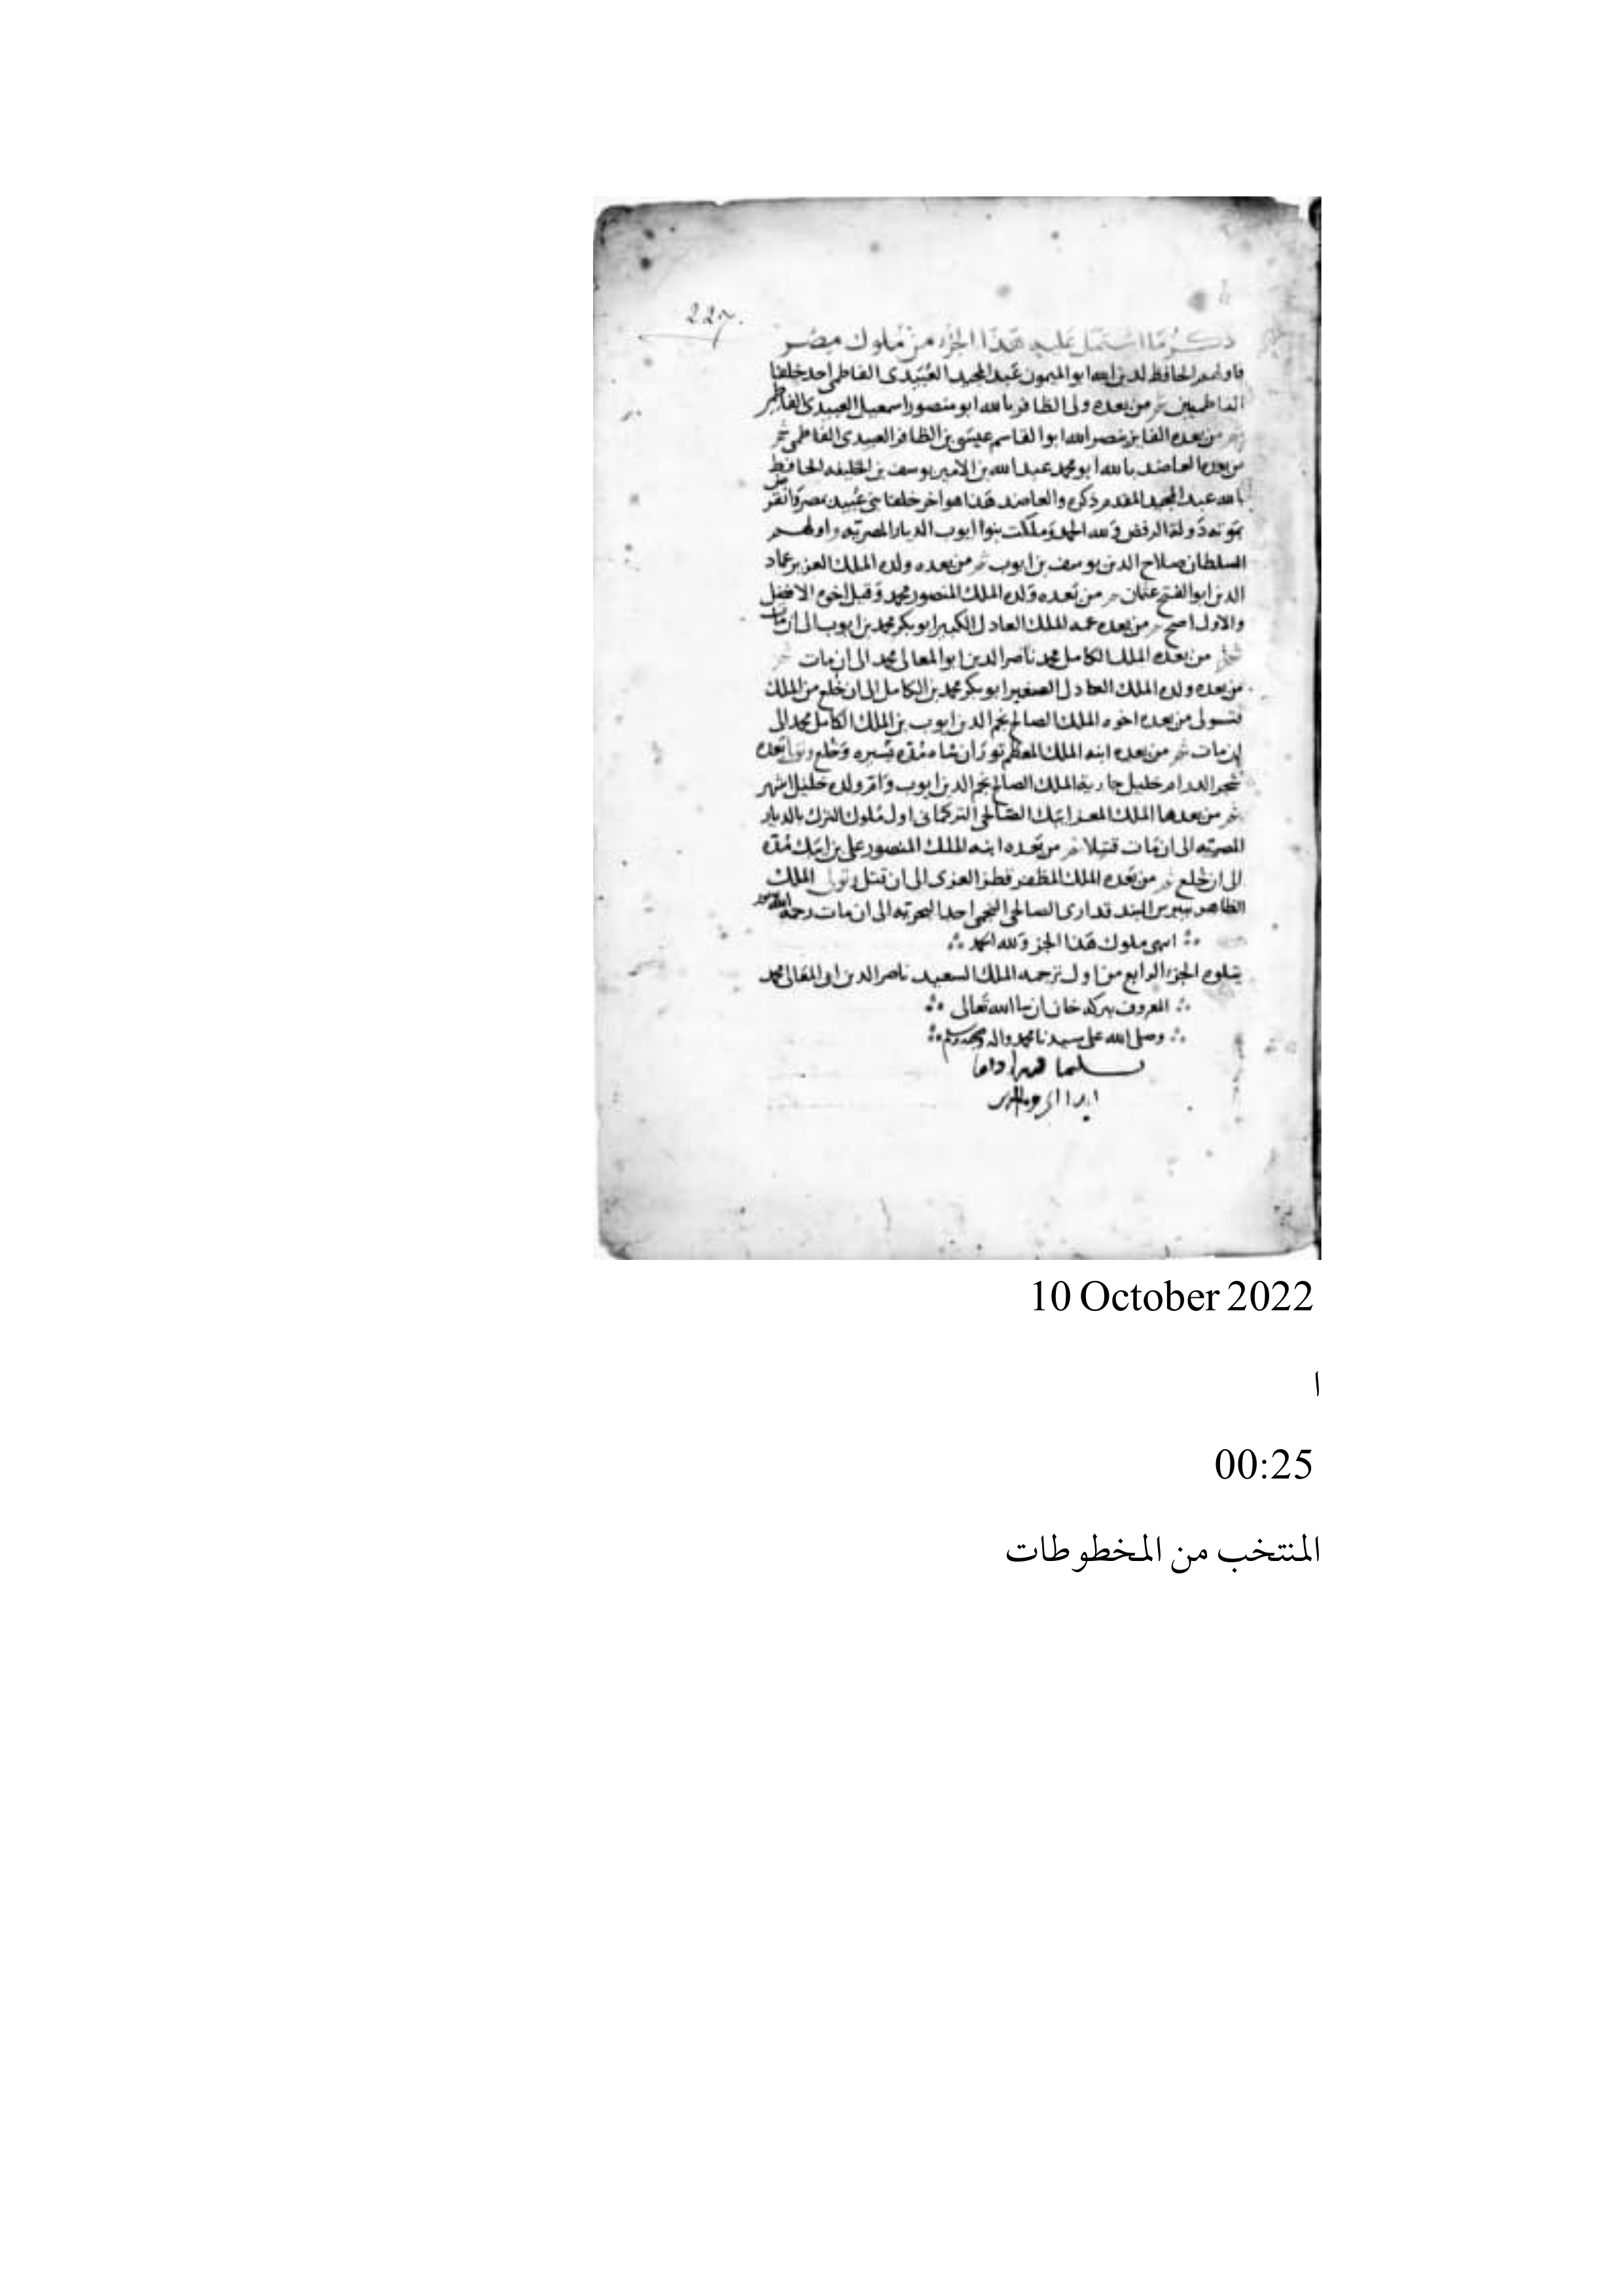 227.
ذكر ما اشتمل عليه هذا الجزء من ملوك مصر
فاولهم الحافظ لدين الله ابو الميمون عبد المجيد العبيدى الفاطمى احد خلفا
الفاطميين ثم من بعده ولى الظافر بالله ابو منصور اسمعيل العبيدى الفاطمى
ثم من بعده الفايز بنصر الله ابو القاسم عيسى بن الظافر العبيدى الفاطمى ثم
من بعده العاضد بالله ابو محمد عبد الله بن الامير يوسف بن الخليفه الحافظ
بالله عبد المجيد المقدم ذكره والعاضد هذا هو اخر خلفا بنى عبيد بمصر وانقرض
بموته دولة الرفض ولله الحمد وملكت بنوا ايوب الديار المصريه واولهم
السلطان صلاح الدين يوسف بن ايوب ثم من بعده ولده الملك العزيز عماد
الدين ابو الفتح عثمان ثم من بعده ولده الملك المنصور محمد وقيل اخوه الافضل
والاول اصح ثم من بعده عمه الملك العادل الكبير ابو بكر محمد بن ايوب الى ان مات
ثم من بعده الملك الكامل محمد ناصر الدين ابو المعالى محمد الى ان مات ثم
من بعده ولده الملك العادل الصغير ابو بكر محمد بن الكامل الى ان خلع من الملك
فتولى من بعده اخوه الملك الصالح نجم الدين ايوب بن الملك الكامل محمد الى
ان مات ثم من بعده ابنه الملك المعظم توران شاه مده يسيره وخلع وتولى بعده
شجر الدر ام خليل جارية الملك الصالح نجم الدين ايوب وام ولده خليل اشهر
ثم من بعدها الملك المعز ايبك الصالحى التركمانى اول ملوك الترك بالديار
المصريه الى ان مات قتيلا ثم من بعده ابنه الملك المنصور على بن ايبك مده
الى ان خلع ثم من بعده الملك المظفر قطز المعزى الى ان قتل وتولى الملك
الظاهر بيبرس البندقدارى الصالحى النجمى احد البحريه الى ان مات رحمه الله
انتهى ملوك هذا الجز ولله الحمد
يتلوه الجزء الرابع من اول ترجمه الملك السعيد ناصر الدين ابى المعالى محمد
المعروف ببركه خان ان شا الله تعالى
وصلى الله على سيدنا محمد واله وصحبه وسلم
تسليما
10 October 2022
ا
00:25
المنتخب من المخطوطات